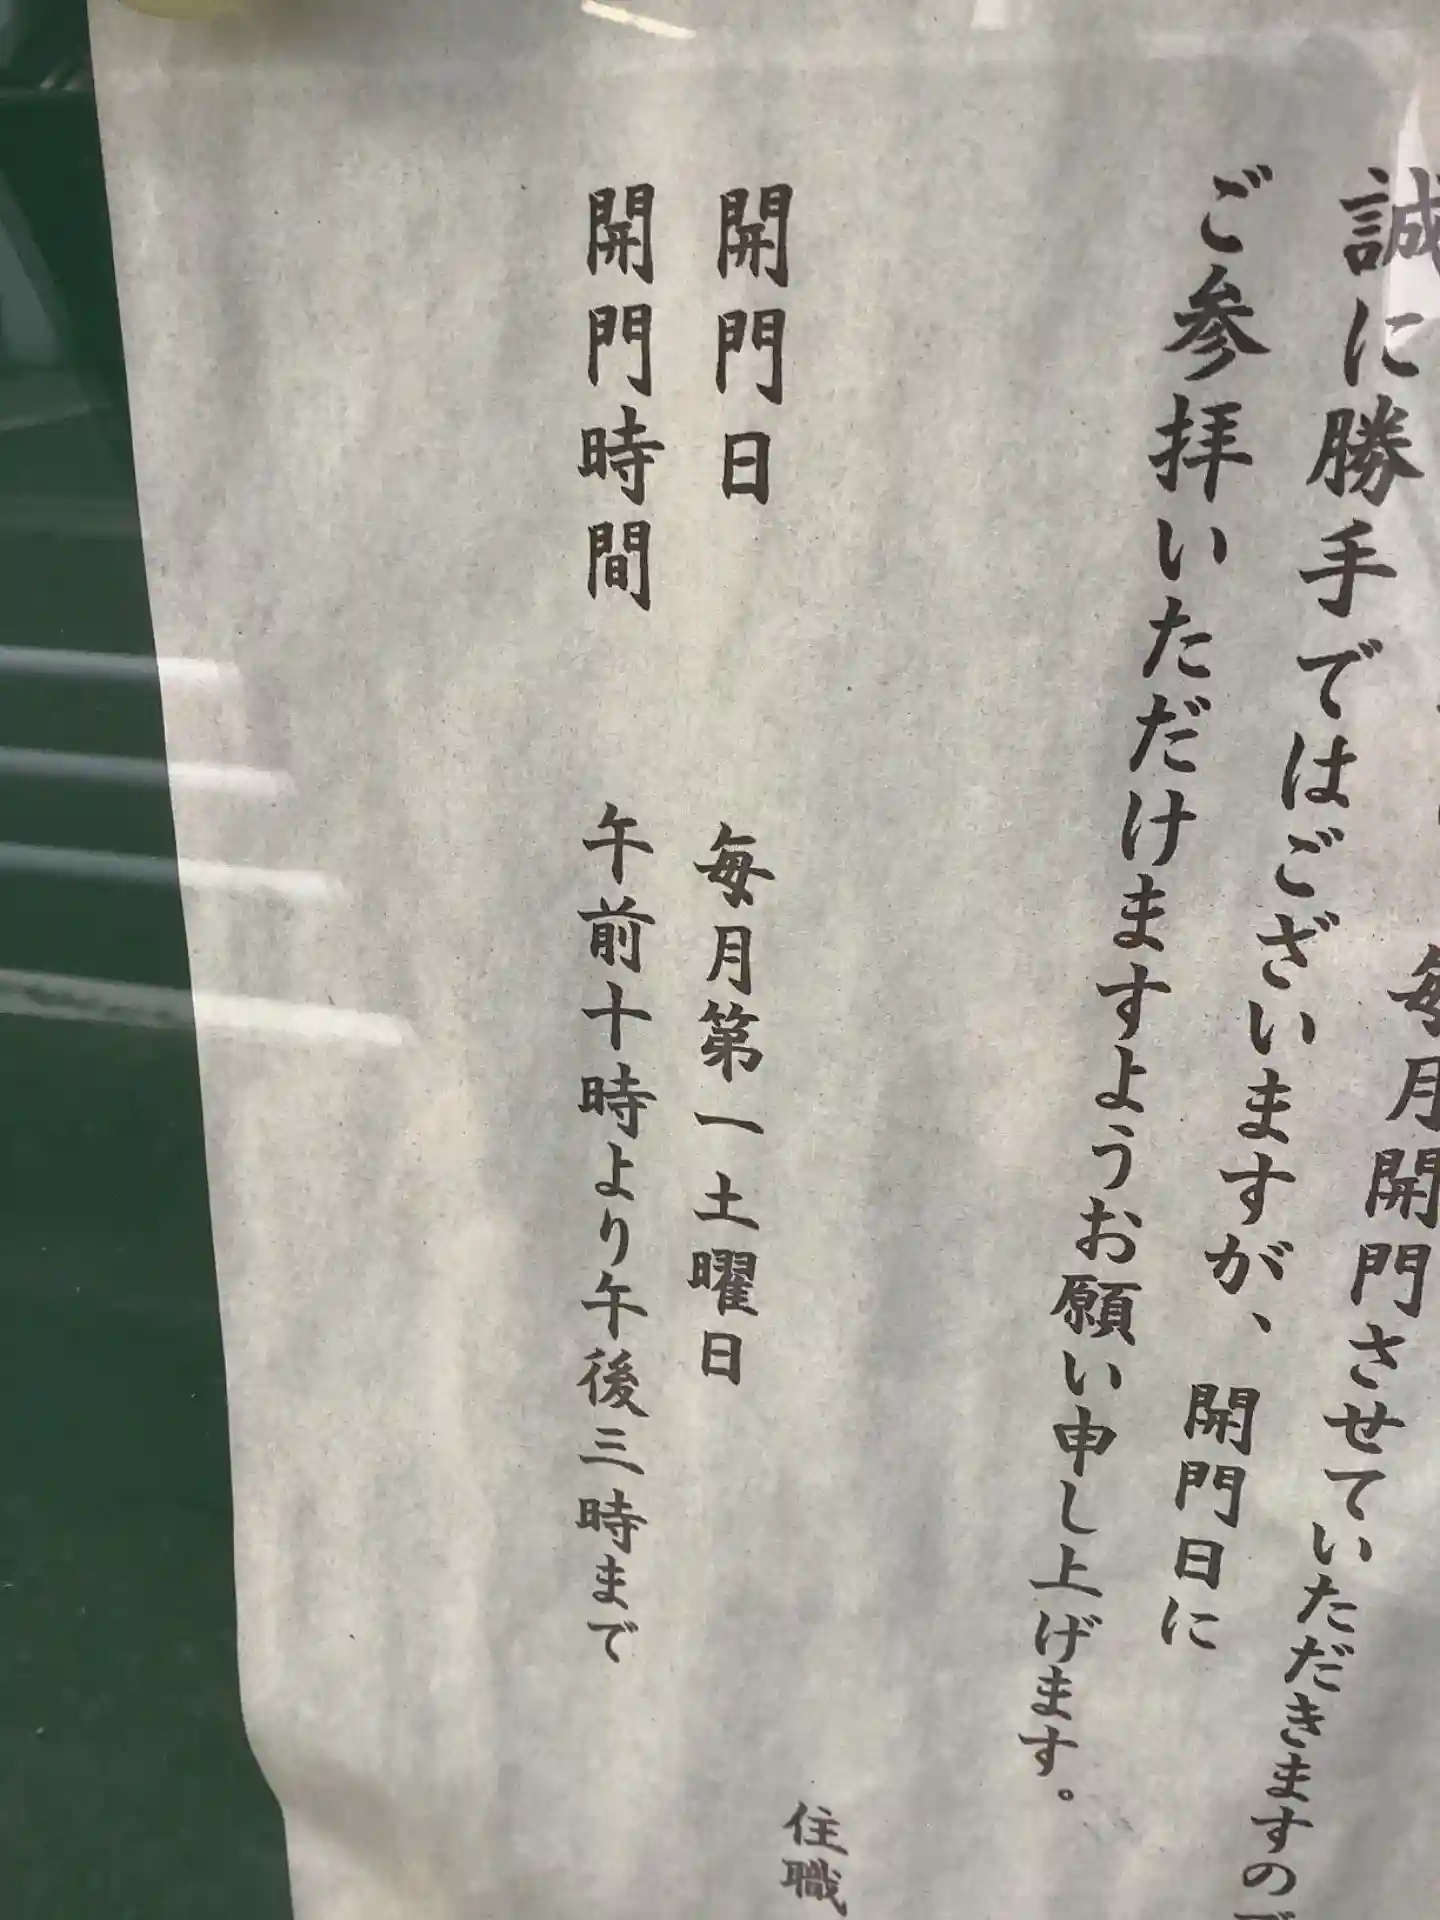 毎月開門させていただきますので
誠に勝手ではございますが、開門日に
ご参拝いただけますようお願い申し上げます。
住職
開門日 毎月第一土曜日
開門時間 午前十時より午後三時まで